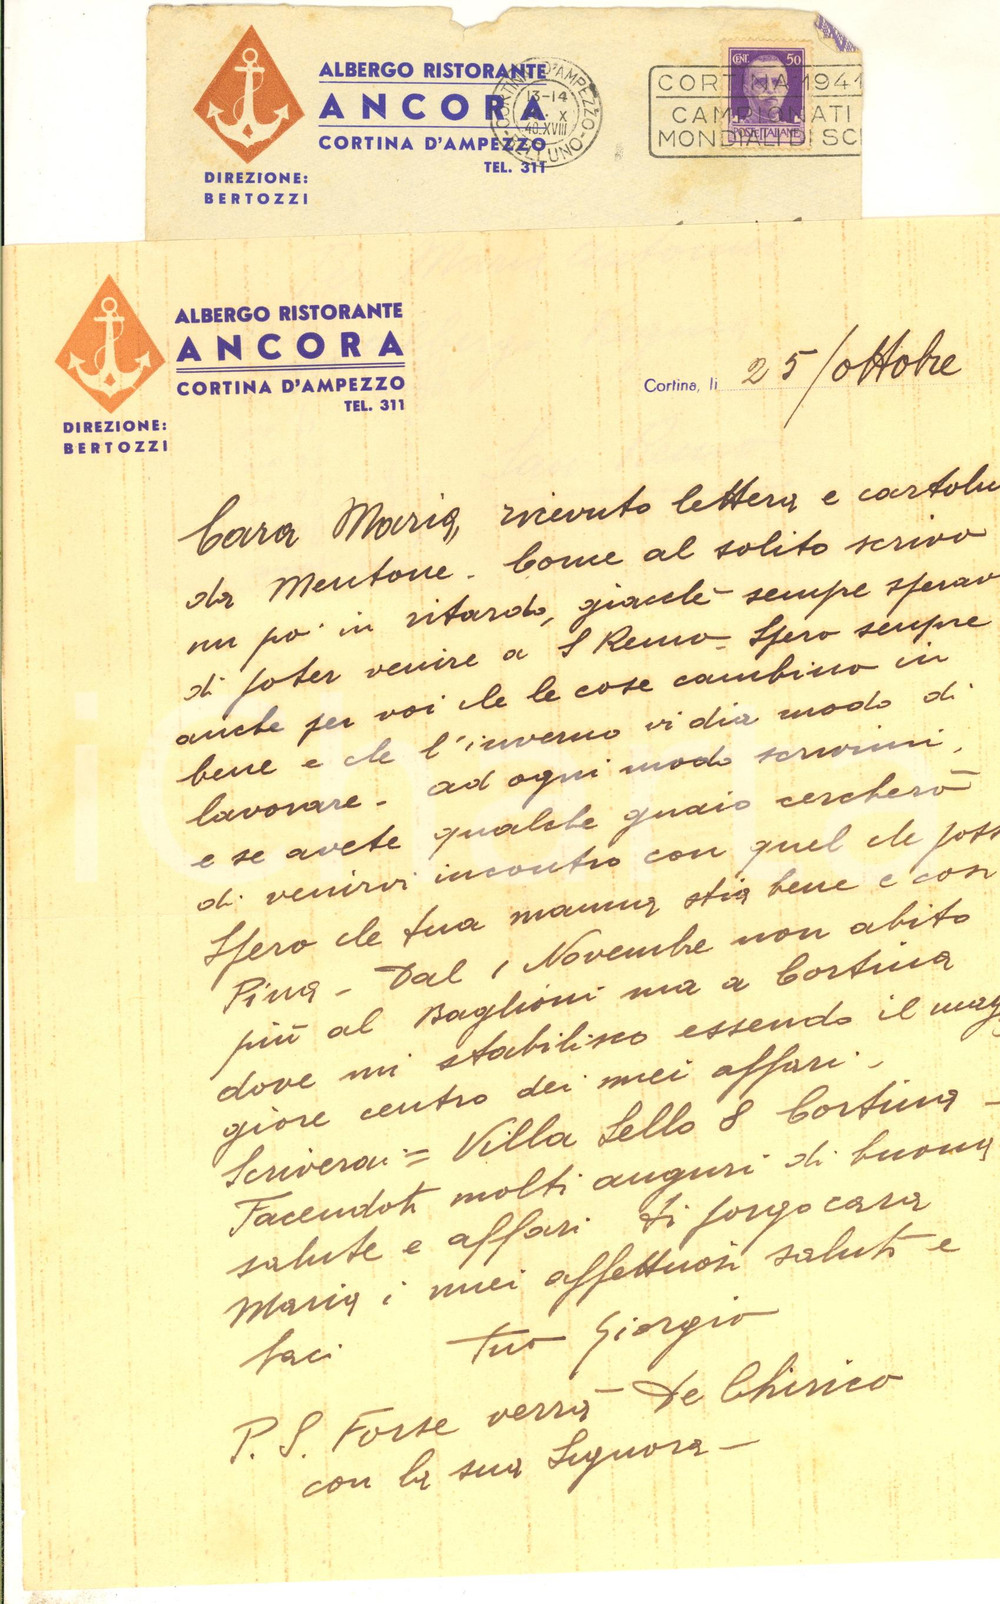 ALBERGO RISTORANTE
ANCORA
CORTINA D'AMPEZZO
TEL. 311
DIREZIONE:
BERTOZZI
CORTINA D'AMPEZZO
13-14
X
40.XVIII
BELLUNO
CENT. 50
POSTE ITALIANE
CORTINA 1941
CAMPIONATI
MONDIALI DI SCI
ALBERGO RISTORANTE
ANCORA
CORTINA D'AMPEZZO
TEL. 311
DIREZIONE:
BERTOZZI
Cortina, li 25/ottobre
Cara Maria, ricevuto lettera e cartolin
da Mentone - Come al solito scrivo
un po' in ritardo, giacchè sempre sperav
di poter venire a S Remo - Spero sempre
anche per voi che le cose cambino in
bene e che l'inverno vi dia modo di
lavorare - ad ogni modo scrivimi,
e se avete qualche guaio cercherò
di venirvi incontro con quel che poss
Spero che tua mamma stia bene e così
Pina - Dal 1 Novembre non abito
più al Baglioni ma a Cortina
dove mi stabilisco essendo il mag
giore centro dei miei affari -
Scriverai = Villa Lello 8 Cortina -
Facendoti molti auguri di buona
salute e affari ti porgo cara
Maria i miei affettuosi saluti e
baci tuo Giorgio
P.S. Forse verrà De Chirico
con la sua Signora -